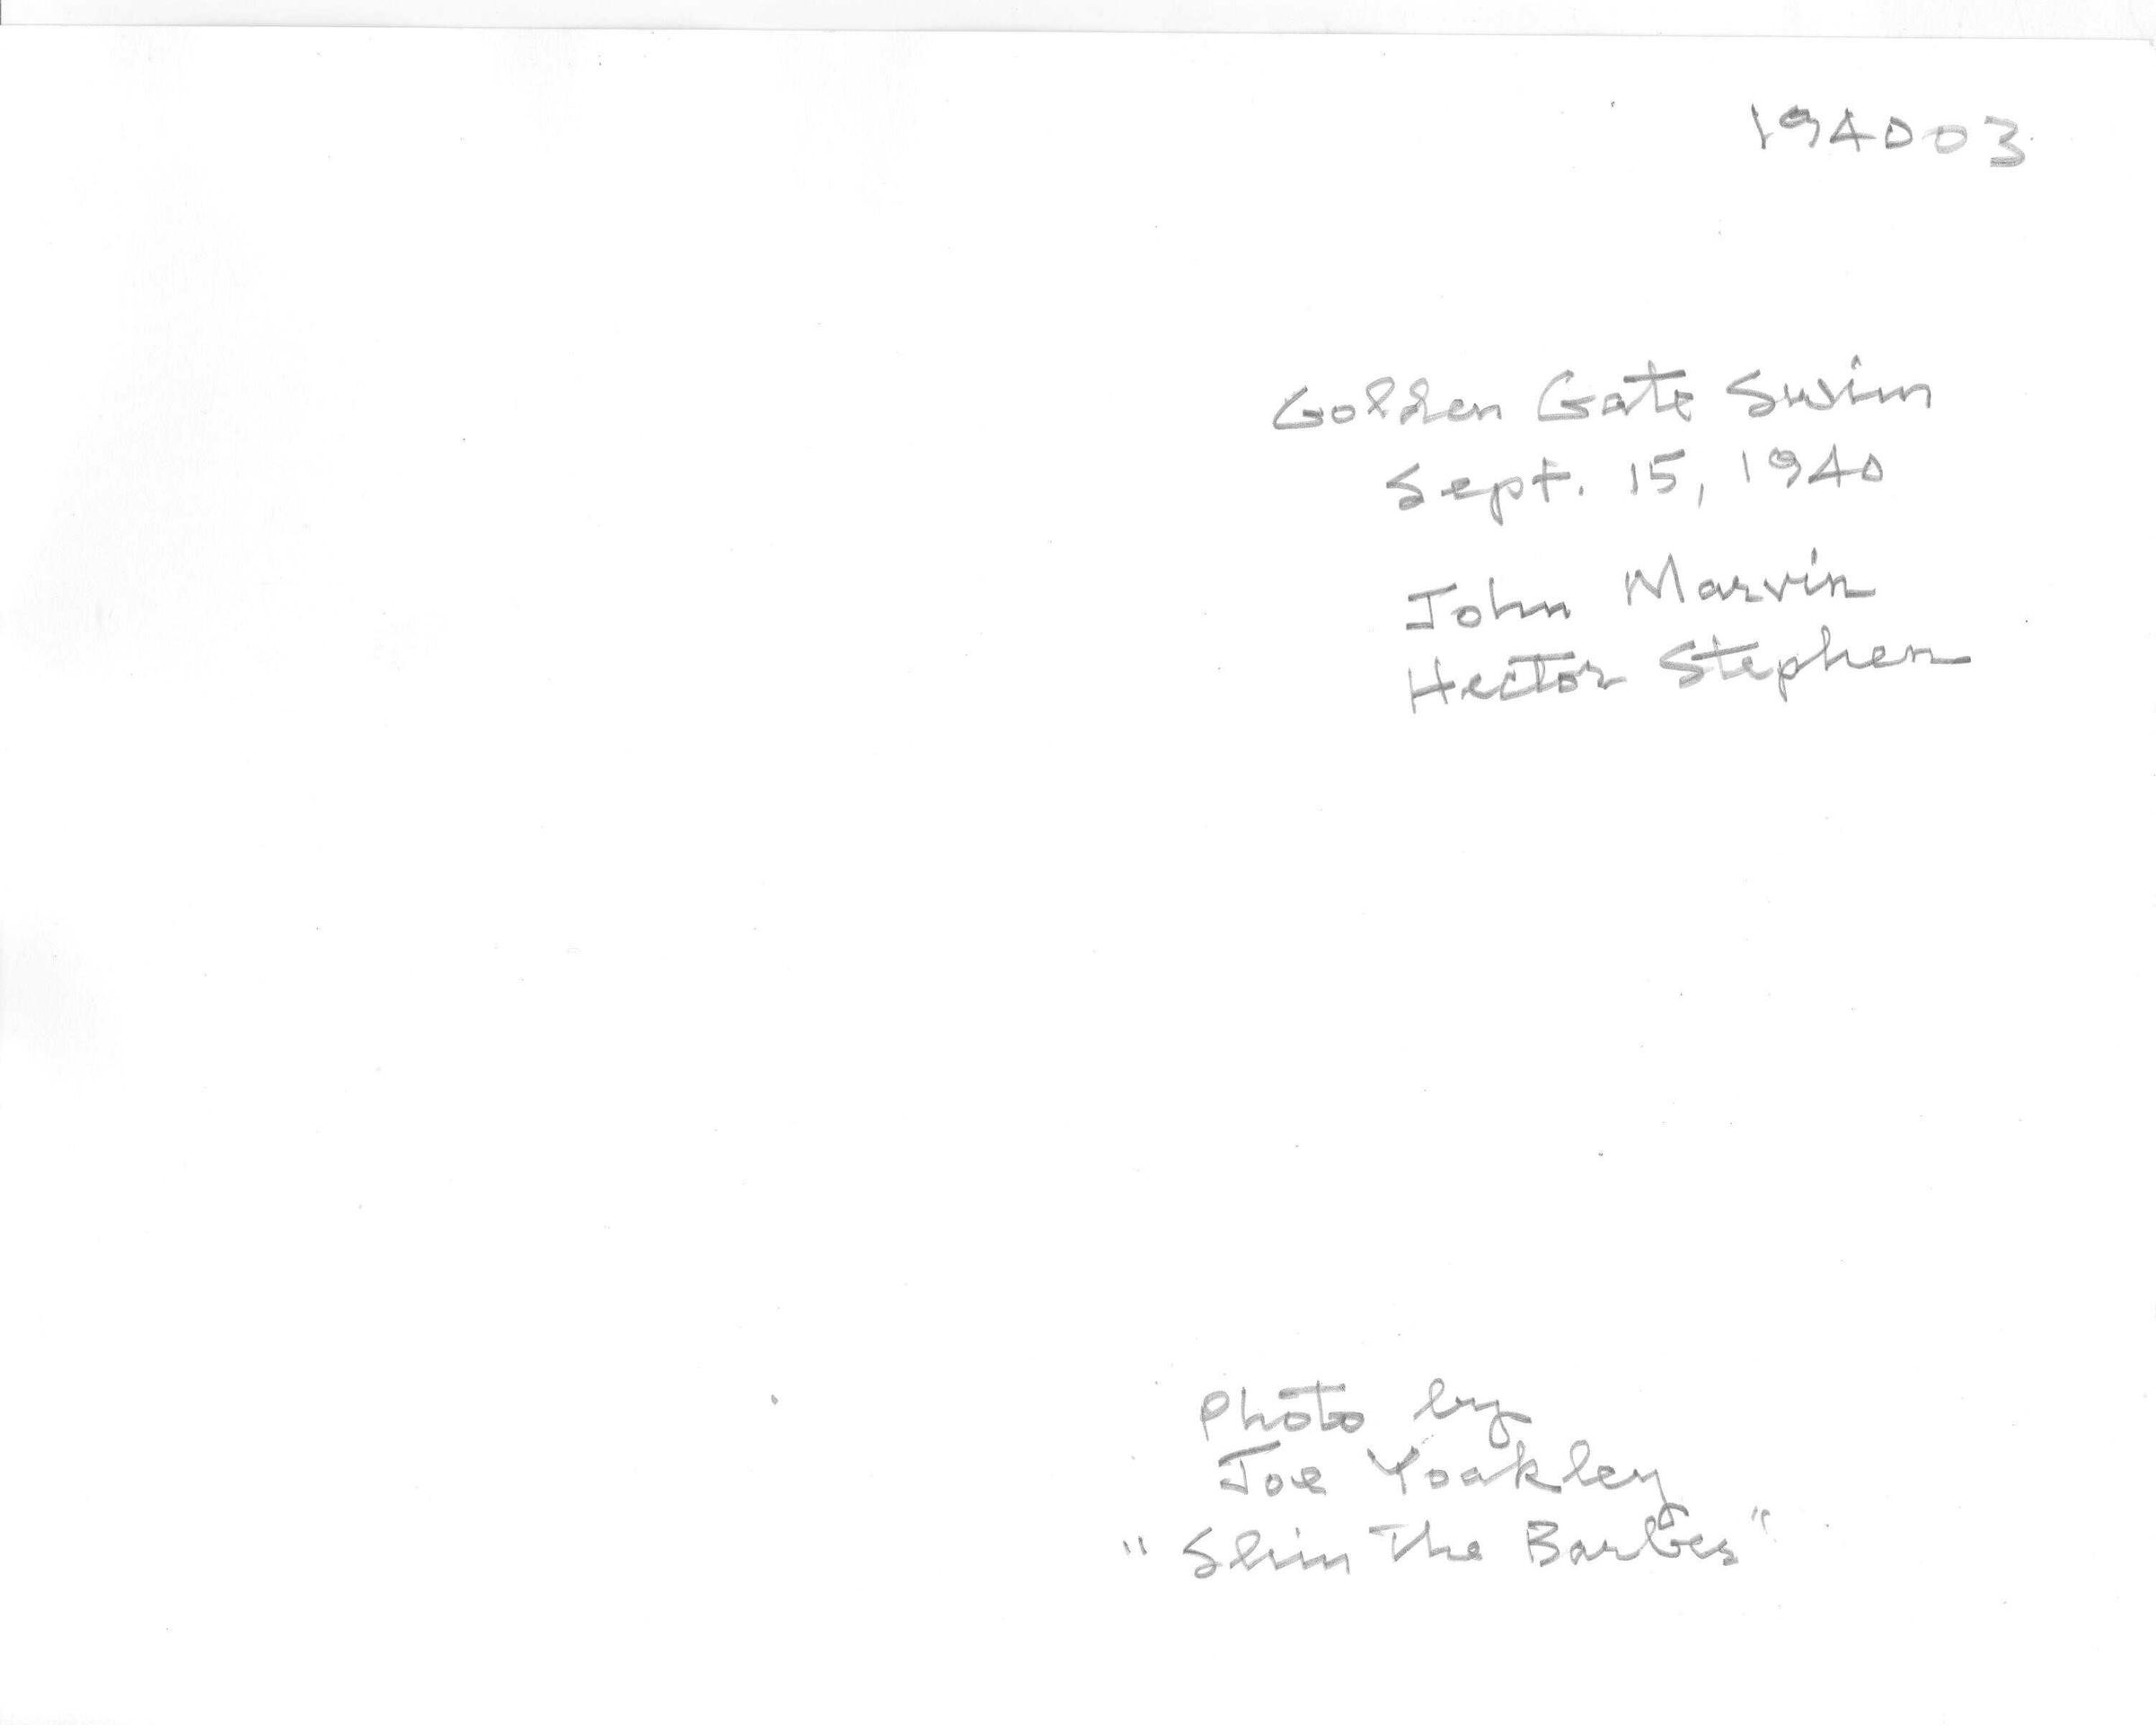 194003
Golden Gate Swim
Sept. 15, 1940
John Marvin
Hector Stephen
Photo by
Joe Yoakley
"Slim The Barber"